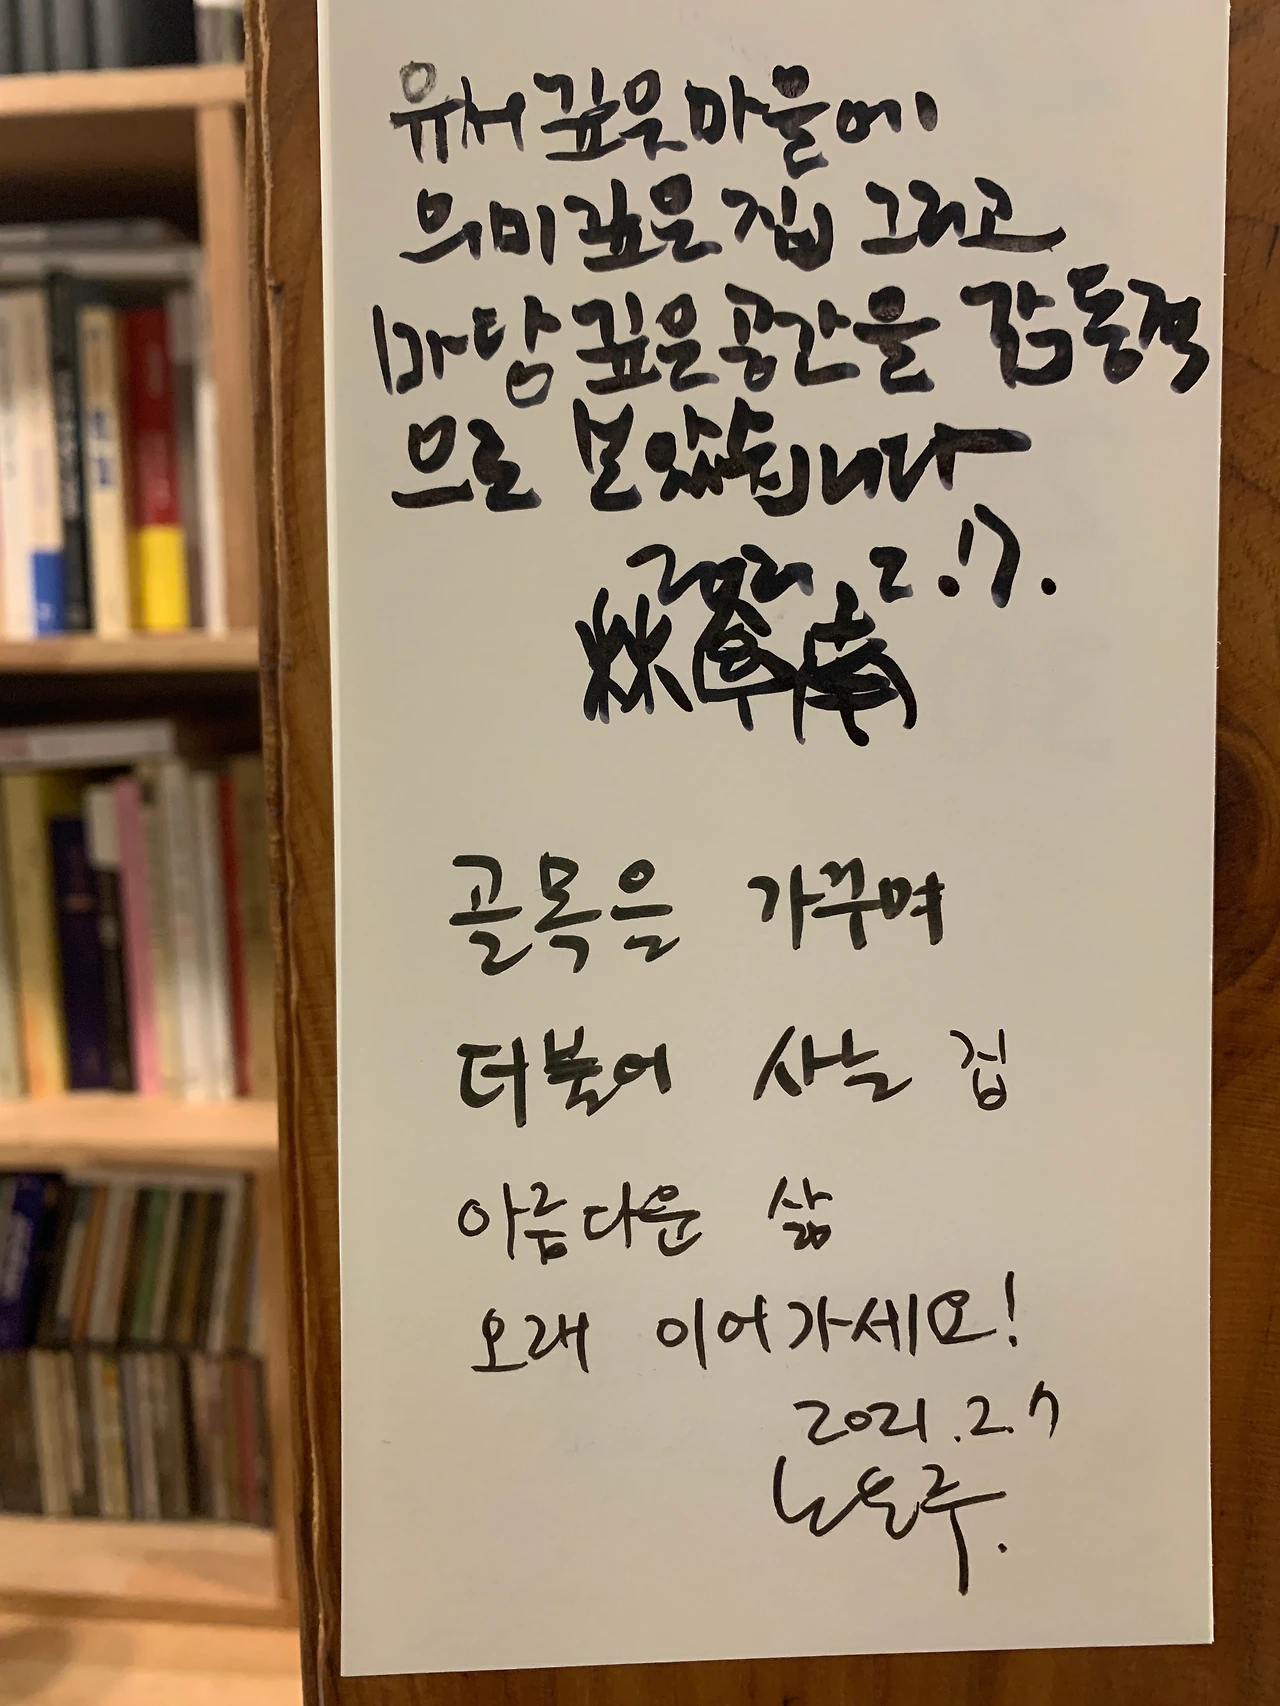 유서 깊은 마을에
의미 깊은 집 그리고
마당 깊은 공간을 감동적
으로 보았습니다
2021. 2. 7.
골목을 가꾸며
더불어 사는 집
아름다운 삶
오래 이어가세요!
2021. 2. 7